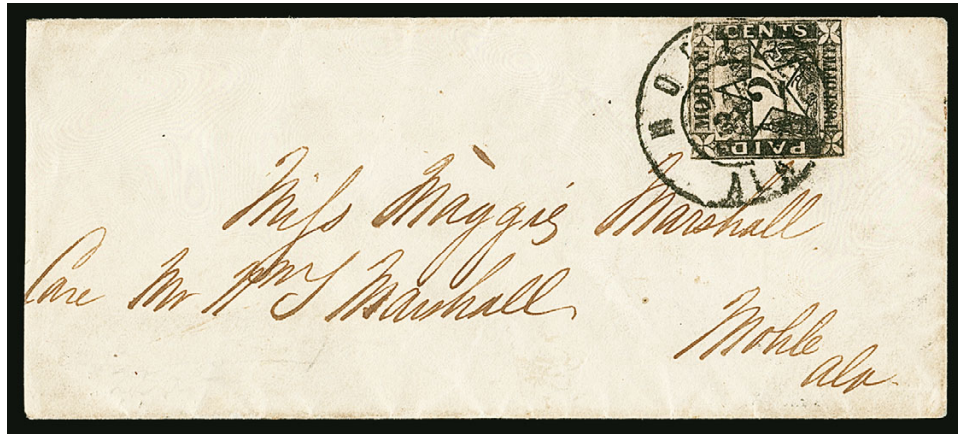 CENTS
MOBILE 2 POST OFFICE
PAID
Miss Maggie Marshall
Care Mr Wm S Marshall
Mobile
Ala